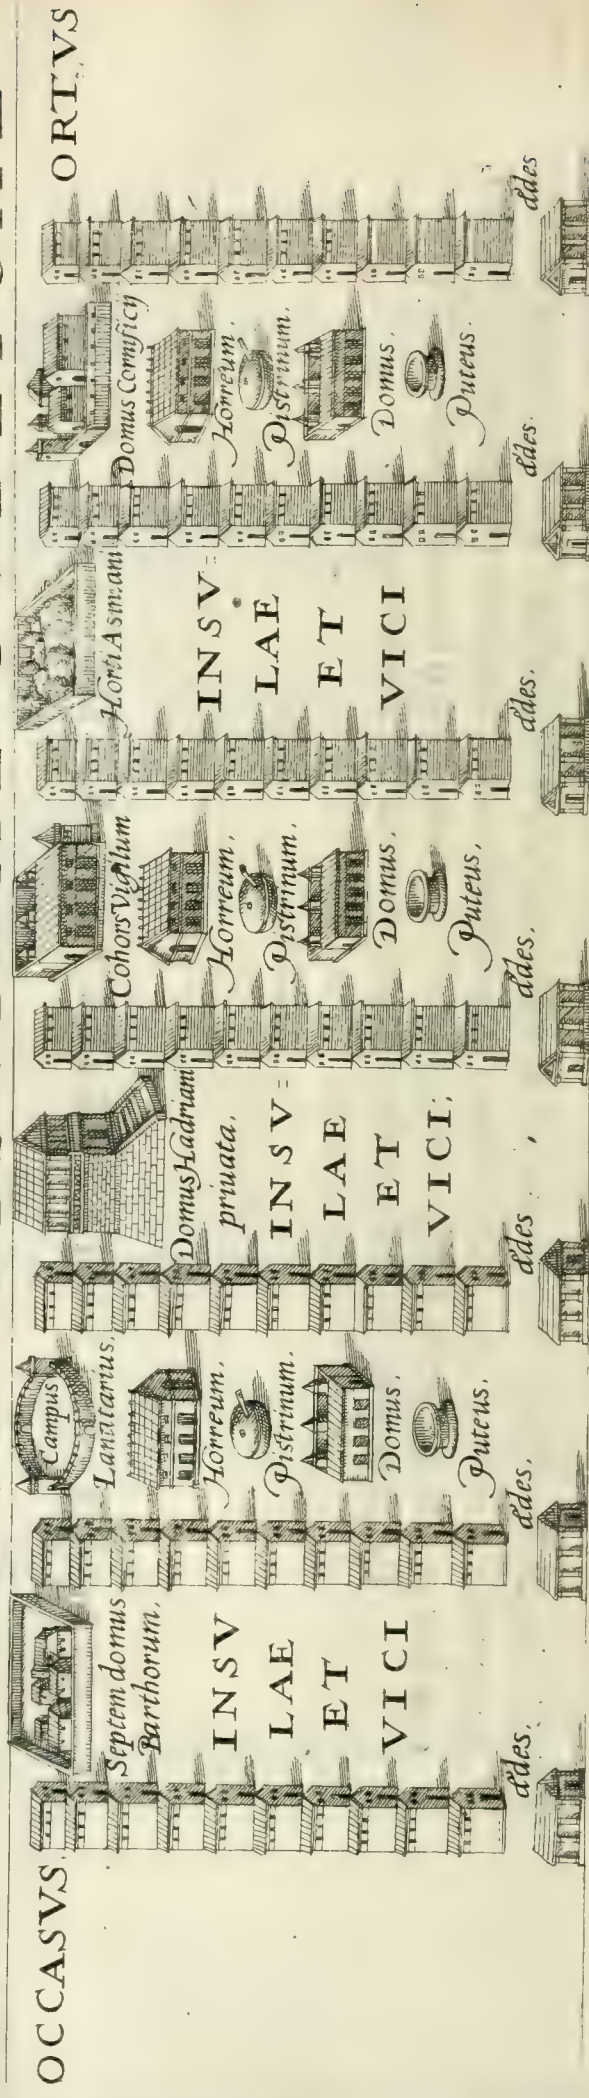 OCCASVS.
Septem domus
Parthorum.
INSV
LAE
ET
VICI
Campus
Lanatarius.
Horreum.
Pistrinum.
Domus.
Puteus.
Domus Hadriani
priuata.
INSV=
LAE
ET
VICI.
Cohors Vigilum
Horreum.
Pistrinum.
Domus.
Puteus.
Horti Asiniani
INSV=
LAE
ET
VICI
Domus Cornificij
Horreum.
Pistrinum.
Domus.
Puteus.
ORTVS
ædes.
ædes.
ædes
ædes.
ædes.
ædes.
ædes